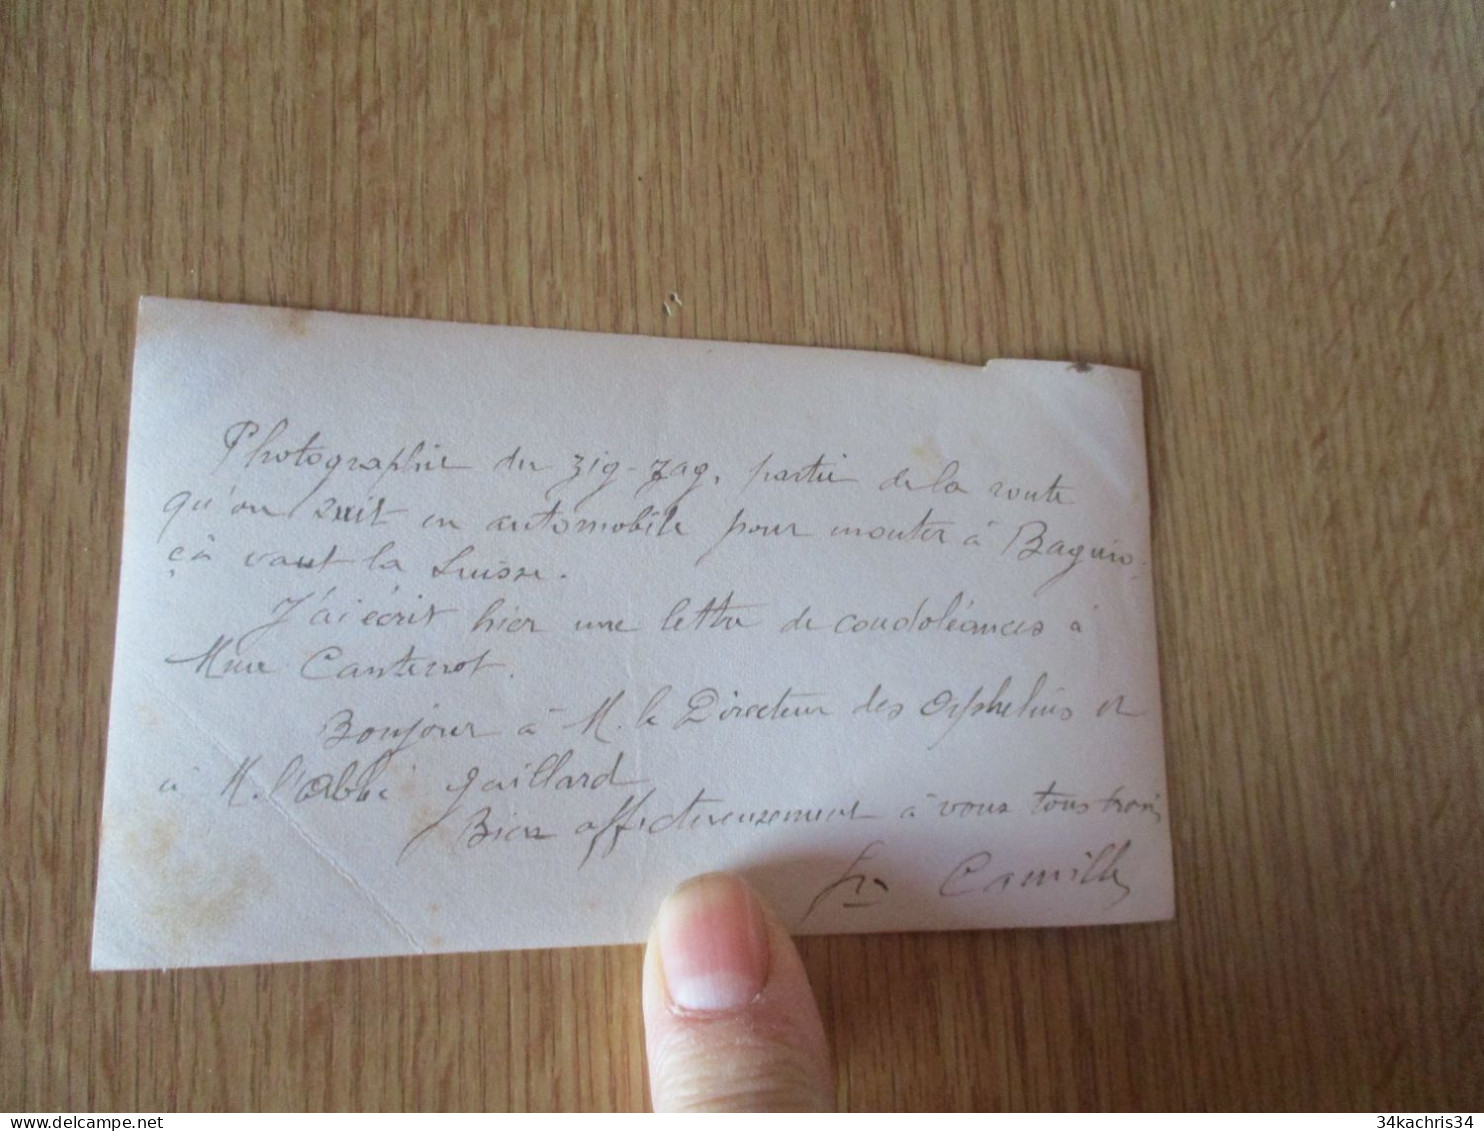 Photographie du zig-zag, partie de la route
qu'on suit en automobile pour monter à Baguio,
çà vaut la Suisse.
J'ai écrit hier une lettre de condoléances à
Mme Canterot.
Bonjour à M. le Directeur des Orphelins et
à M. l'Abbé Gaillard
Bien affectueusement à vous tous trois
Camille
www.delcampe.net
34kachris34